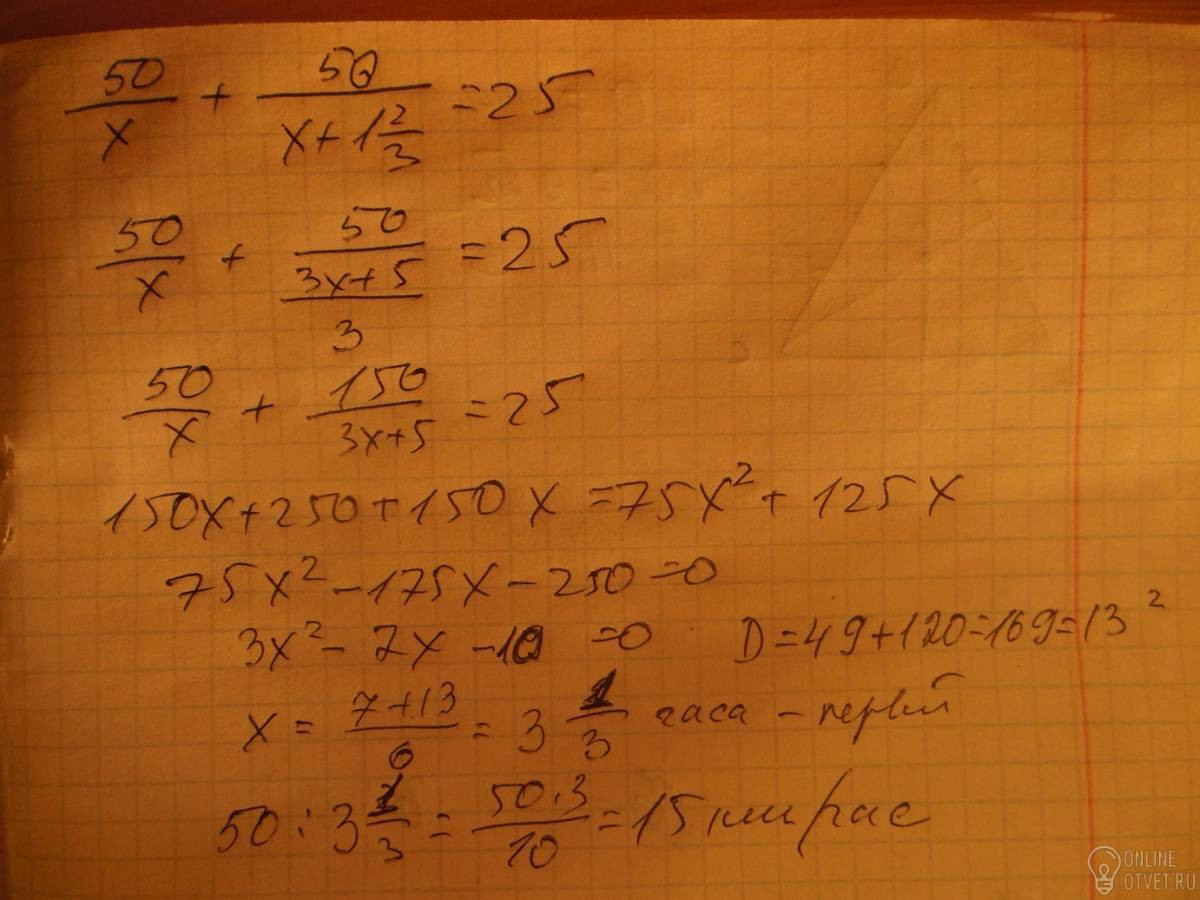 50/x + 50/(x+1 2/3) = 25
50/x + 50/((3x+5)/3) = 25
50/x + 150/(3x+5) = 25
150x+250+150x=75x²+125x
75x²-175x-250=0
3x²-7x-10=0 D=49+120=169=13²
x = (7+13)/6 = 3 1/3 часа - первый
50 : 3 1/3 = (50·3)/10 = 15 км/час
ONLINE
OTVET.RU